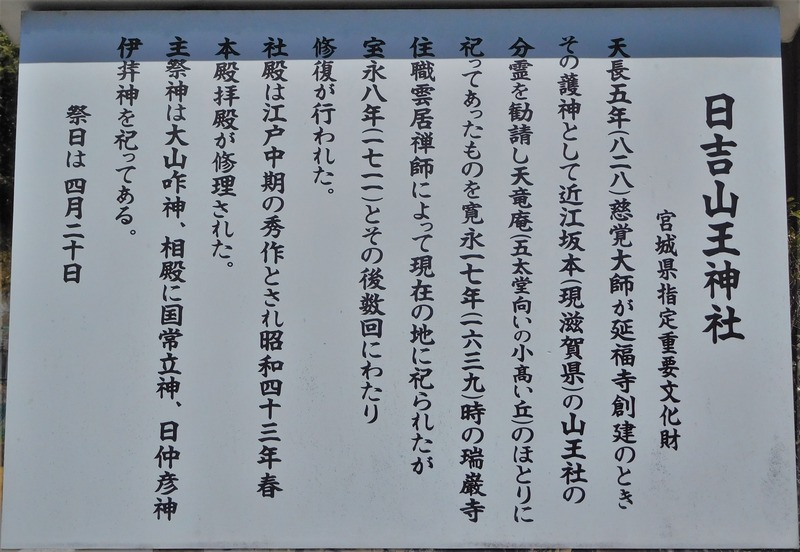 日吉山王神社
宮城県指定重要文化財
天長五年(八二八)慈覚大師が延福寺創建のとき
その護神として近江坂本(現滋賀県)の山王社の
分霊を勧請し天竜庵(五太堂向いの小高い丘)のほとりに
祀ってあったものを寛永一七年(一六三九)時の瑞巌寺
住職雲居禅師によって現在の地に祀られたが
宝永八年(一七一一)とその後数回にわたり
修復が行われた。
社殿は江戸中期の秀作とされ昭和四十三年春
本殿拝殿が修理された。
主祭神は大山咋神、相殿に国常立神、日仲彦神
伊弉神を祀ってある。
祭日は 四月二十日